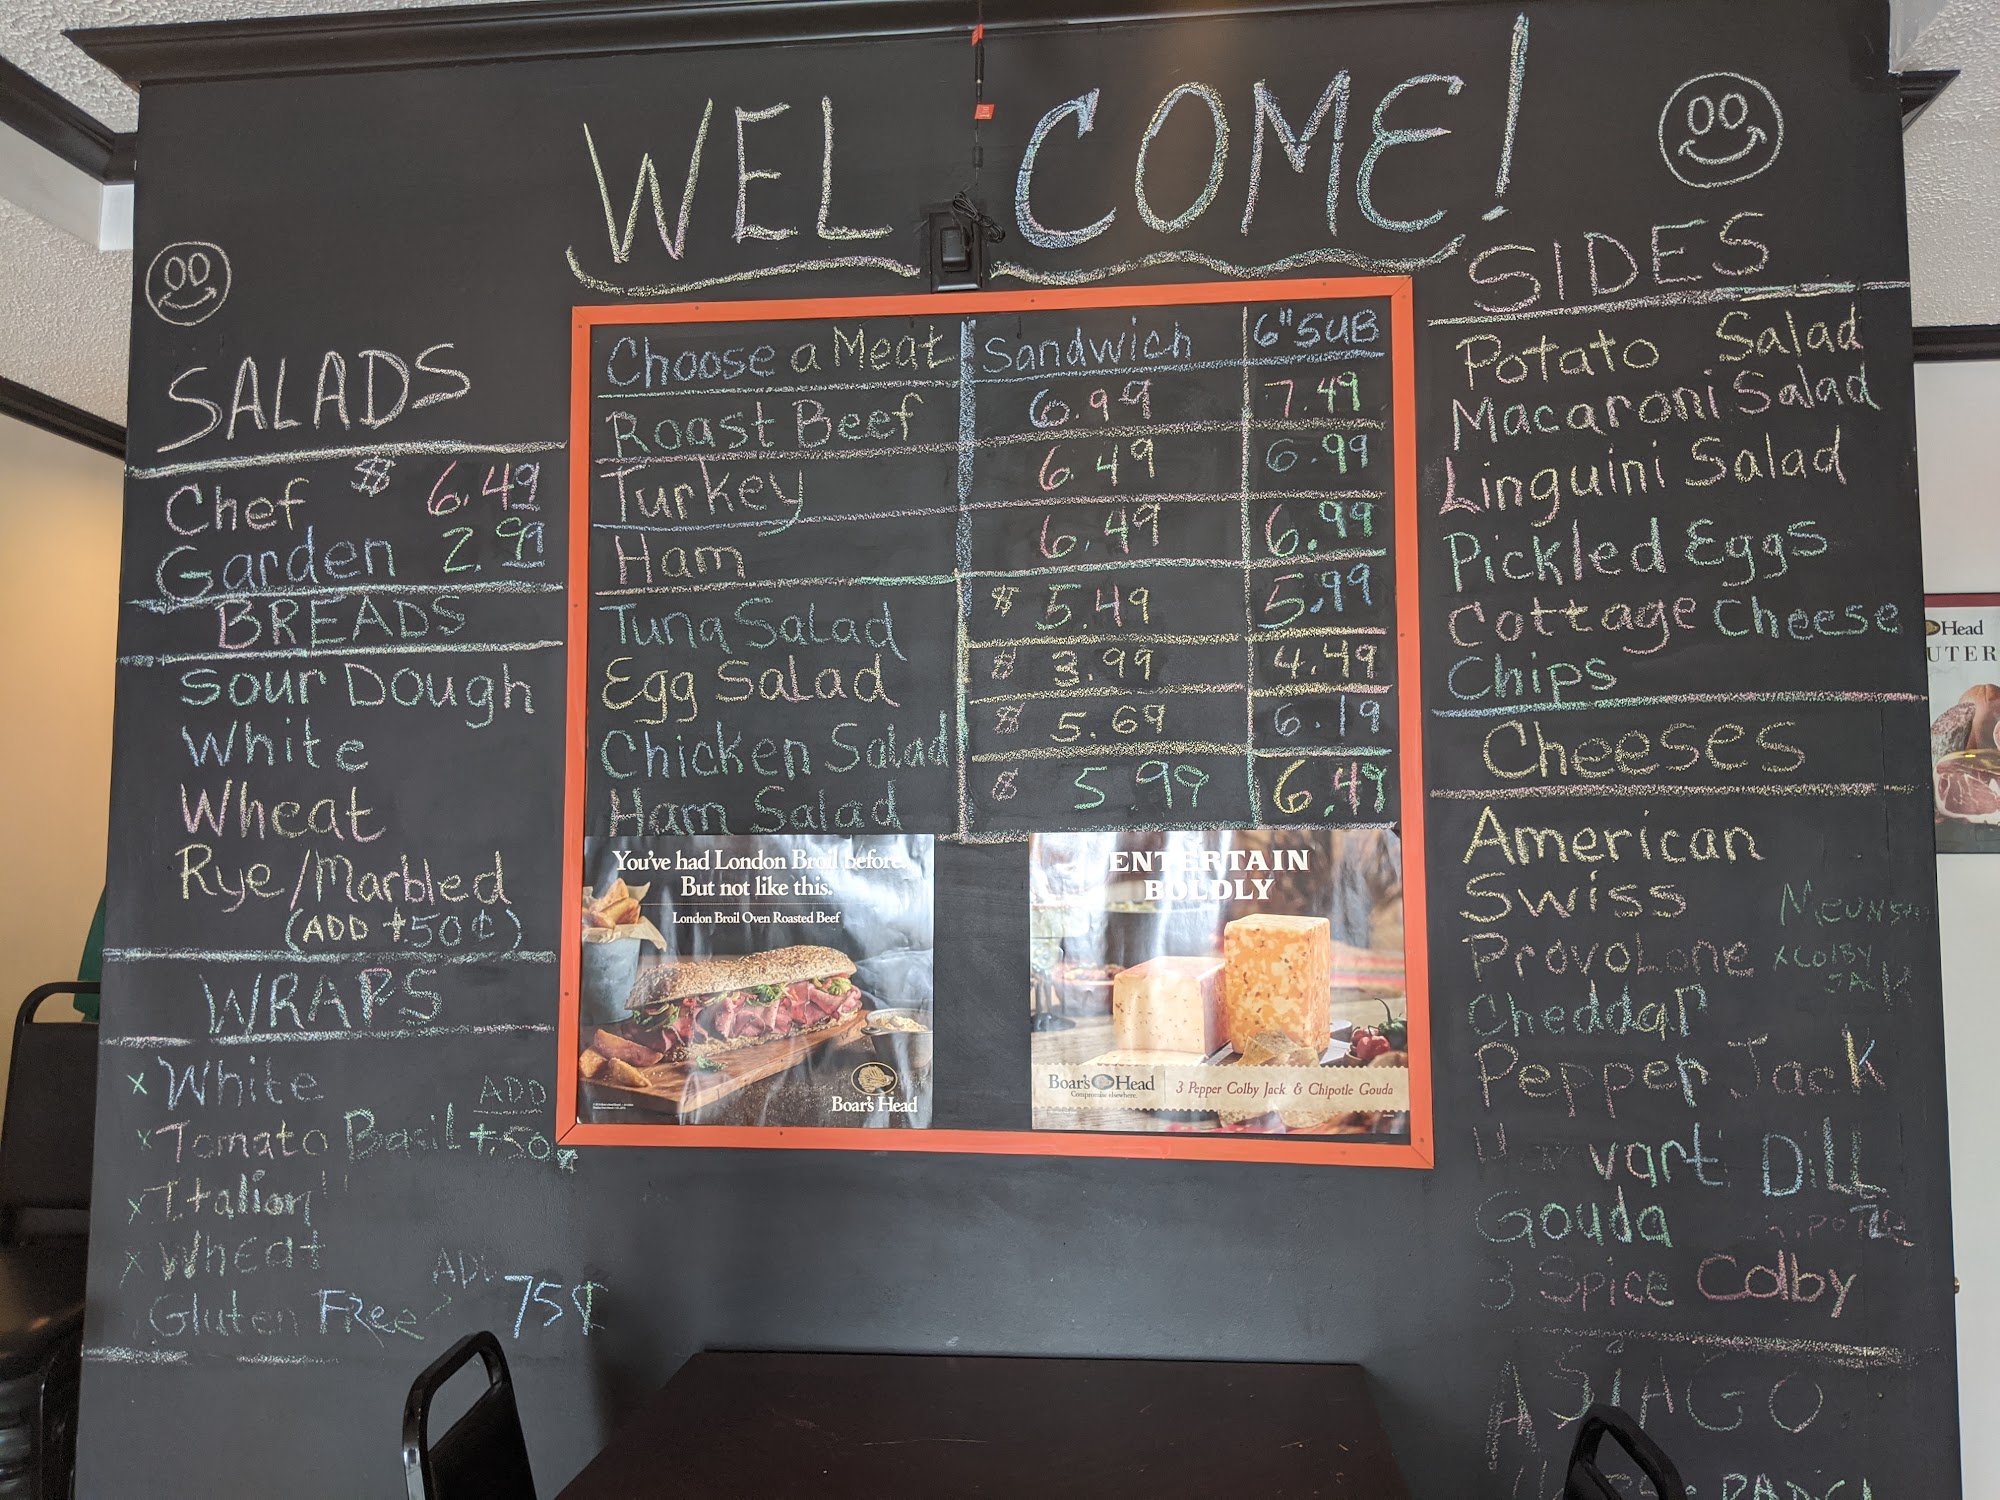 WELCOME!
SALADS
Chef $ 6.49
Garden 2.99
BREADS
Sour Dough
White
Wheat
Rye/Marbled
(ADD +.50¢)
WRAPS
x White
ADD
x Tomato Basil +.50¢
x Italian
x Wheat
Gluten Free ADD 75¢
Choose a Meat Sandwich 6" SUB
Roast Beef 6.99 7.49
Turkey 6.49 6.99
Ham 6.49 6.99
Tuna Salad $ 5.49 5.99
Egg Salad $ 3.99 4.49
Chicken Salad $ 5.69 6.19
Ham Salad $ 5.99 6.49
You've had London Broil before.
But not like this.
London Broil Oven Roasted Beef
Boar's Head
ENTERTAIN
BOLDLY
Boar's Head
Compromise elsewhere.
3 Pepper Colby Jack & Chipotle Gouda
SIDES
Potato Salad
Macaroni Salad
Linguini Salad
Pickled Eggs
Cottage Cheese
Chips
Cheeses
American
Swiss
Provolone x COLBY
JACK
Cheddar
Pepper Jack
Dill
Gouda
3 Spice Colby
ASIAGO
Head
UTER